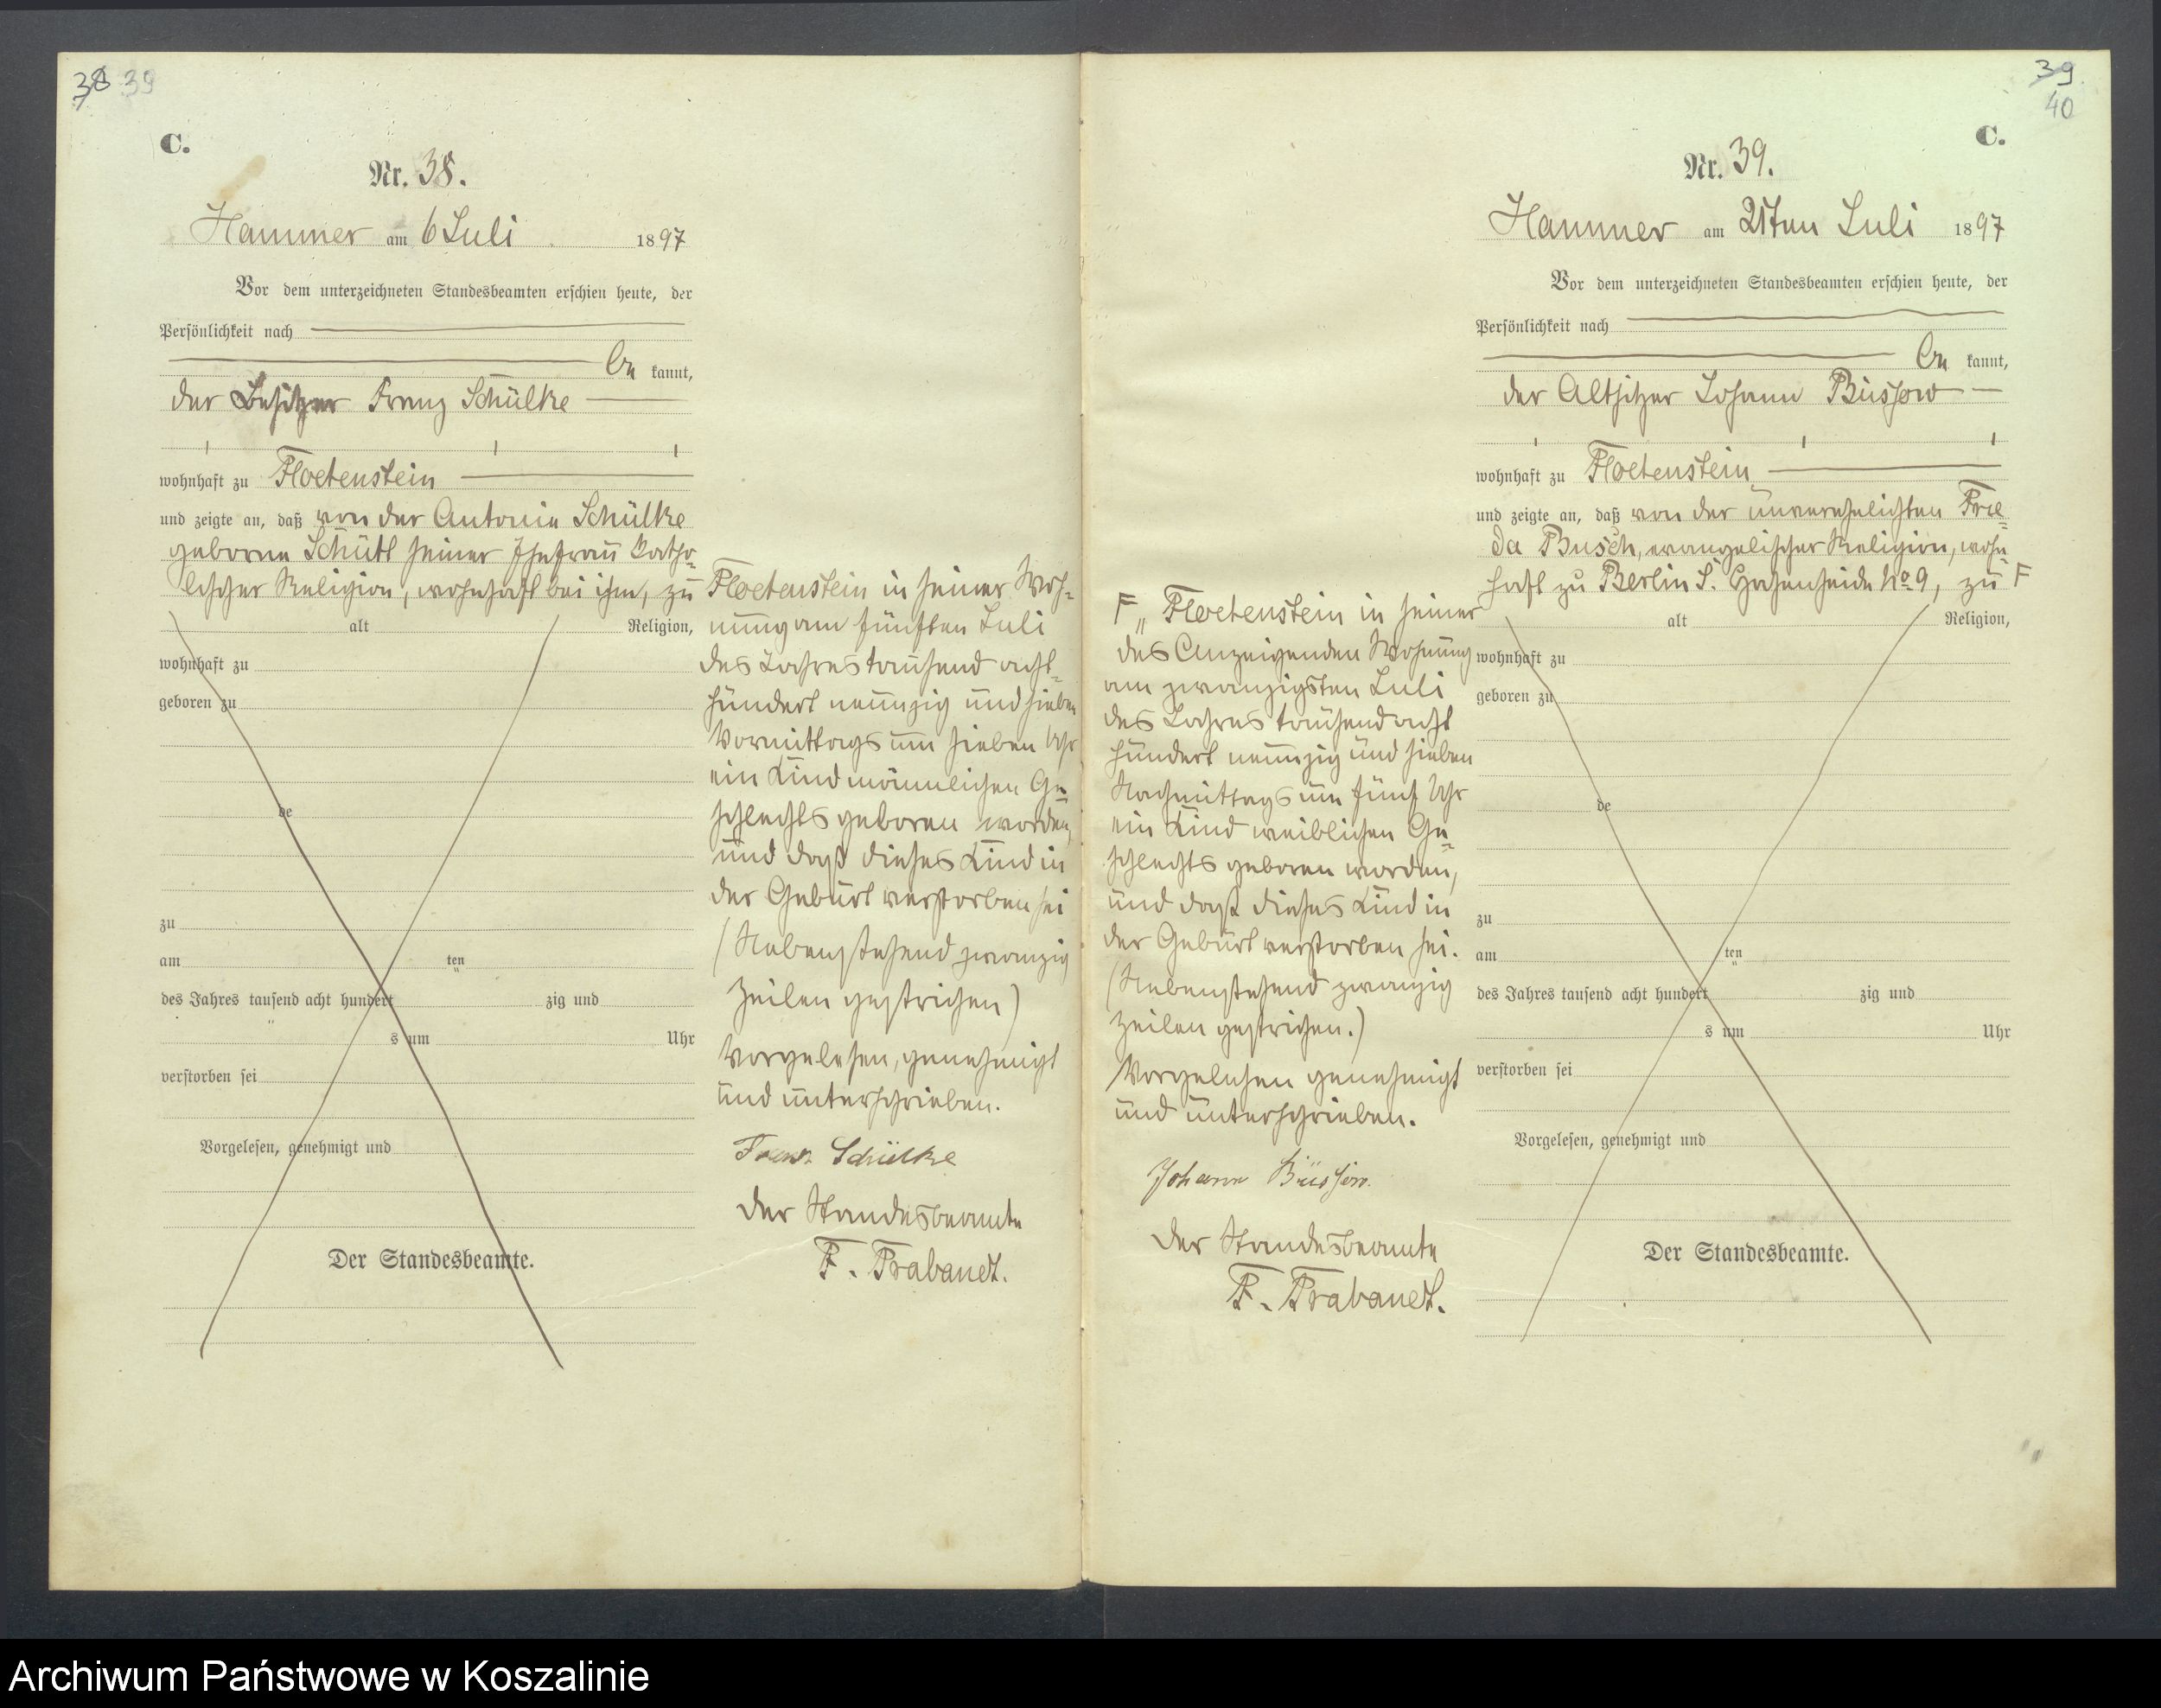 38 39
C.
Nr. 38.
Hammer am 6 Juli 1897
Vor dem unterzeichneten Standesbeamten erschien heute, der
Persönlichkeit nach
be kannt,
der Besitzer Franz Schülke
wohnhaft zu Floetenstein
und zeigte an, daß von der Antonie Schülke
geborne Schütt seiner Ehefrau katho-
lischer Religion, wohnhaft bei ihm, zu
alt Religion,
wohnhaft zu
geboren zu
de
zu
am ten
des Jahres tausend acht hundert zig und
s um Uhr
verstorben sei
Vorgelesen, genehmigt und
Der Standesbeamte.
Floetenstein in seiner Woh-
nung am fünften Juli
des Jahres tausend acht-
hundert neunzig und sieben
Vormittags um sieben Uhr
ein Kind männlichen Ge-
schlechts geboren worden,
und daß dieses Kind in
der Geburt verstorben sei
(Nebenstehend zwanzig
Zeilen gestrichen)
Vorgelesen, genehmigt
und unterschrieben.
Franz Schülke
Der Standesbeamte
F. Brabandt.
39
40
C.
Nr. 39.
Hammer am 21ten Juli 1897
Vor dem unterzeichneten Standesbeamten erschien heute, der
Persönlichkeit nach
be kannt,
der Altsitzer Johann Büssow
wohnhaft zu Floetenstein
und zeigte an, daß von der unverehelichten Frie-
da Busch, evangelischer Religion, wohn
haft zu Berlin S. Hasenheide No 9, zu F
alt Religion,
wohnhaft zu
geboren zu
de
zu
am ten
des Jahres tausend acht hundert zig und
s um Uhr
verstorben sei
Vorgelesen, genehmigt und
Der Standesbeamte.
F „ Floetenstein in seiner
des Anzeigenden Wohnung
am zwanzigsten Juli
des Jahres tausend acht
hundert neunzig und sieben
Nachmittags um fünf Uhr
ein Kind weiblichen Ge-
schlechts geboren worden,
und daß dieses Kind in
der Geburt verstorben sei.
(Nebenstehend zwanzig
Zeilen gestrichen.)
Vorgelesen genehmigt
und unterschrieben.
Johann Büssow.
Der Standesbeamte
F. Brabandt.
Archiwum Państwowe w Koszalinie